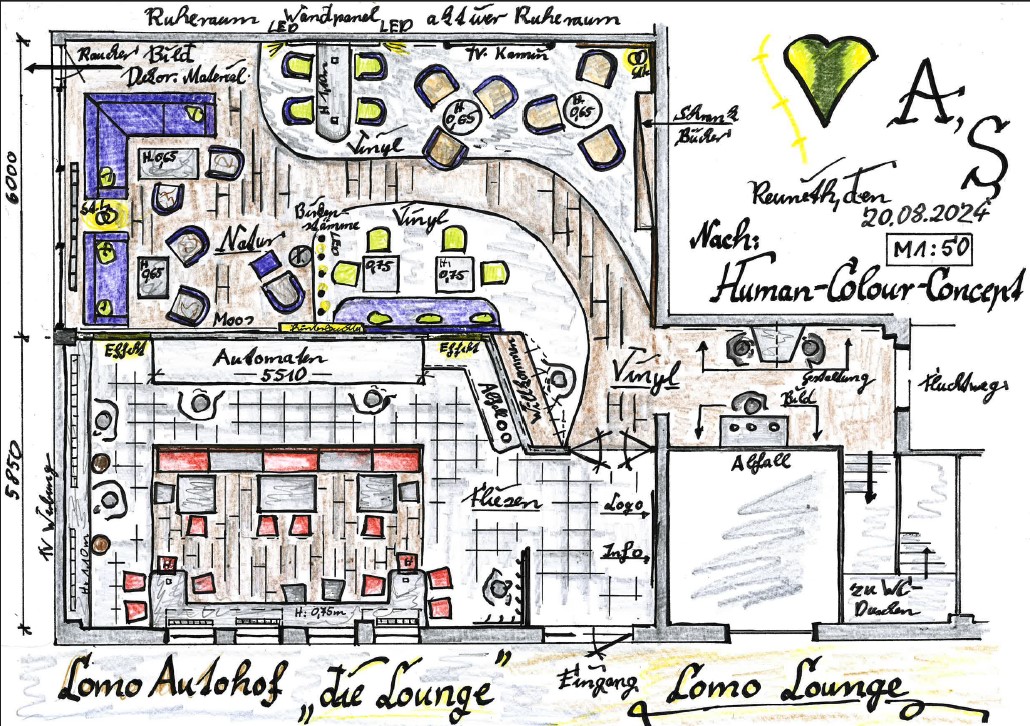 Ruheraum Wandpanel aktiver Ruheraum
LED LED
Raucher Bild
Dekor. Material
TV. Kamin
H:
0,65
H:
0,65
Vinyl
Schrank
Bücher
A, S
Reuneth, den
20.08.2024
M1:50
Nach:
Human-Colour-Concept
6000
H:0,65
Birken-
stämme
LED
Vinyl
Natur
H:
0,65
0,75
H:
0,75
Moos
Effekt
Effekt
Automaten
5510
Willkommen
Vinyl
Gestaltung
Bild
Fluchtweg
Abfall
5850
TV Werbung
H: 1,10m
Fliesen
Logo
Info
H: 0,75m
zu WC-
Duschen
Eingang
Lomo Autohof „die Lounge“
Lomo Lounge